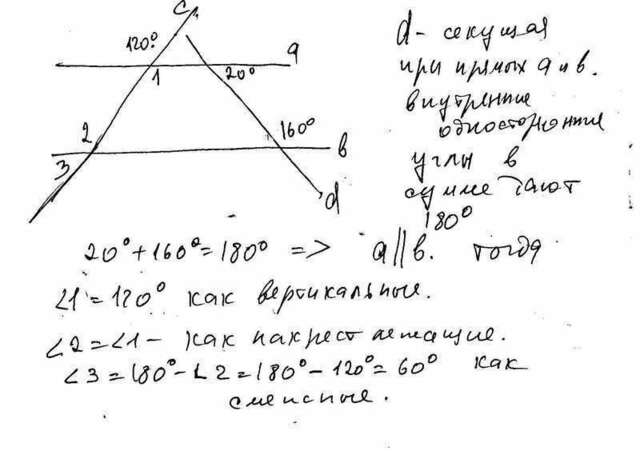 c
120°
a
1
20°
2
160°
b
3
d
d - секущая
при прямых a и b.
внутренние
односторонние
углы в
сумме дают
180°
20° + 160° = 180° => a || b. тогда
∠1 = 120° как вертикальные.
∠2 = ∠1 - как накрест лежащие.
∠3 = 180° - ∠2 = 180° - 120° = 60° как
смежные.